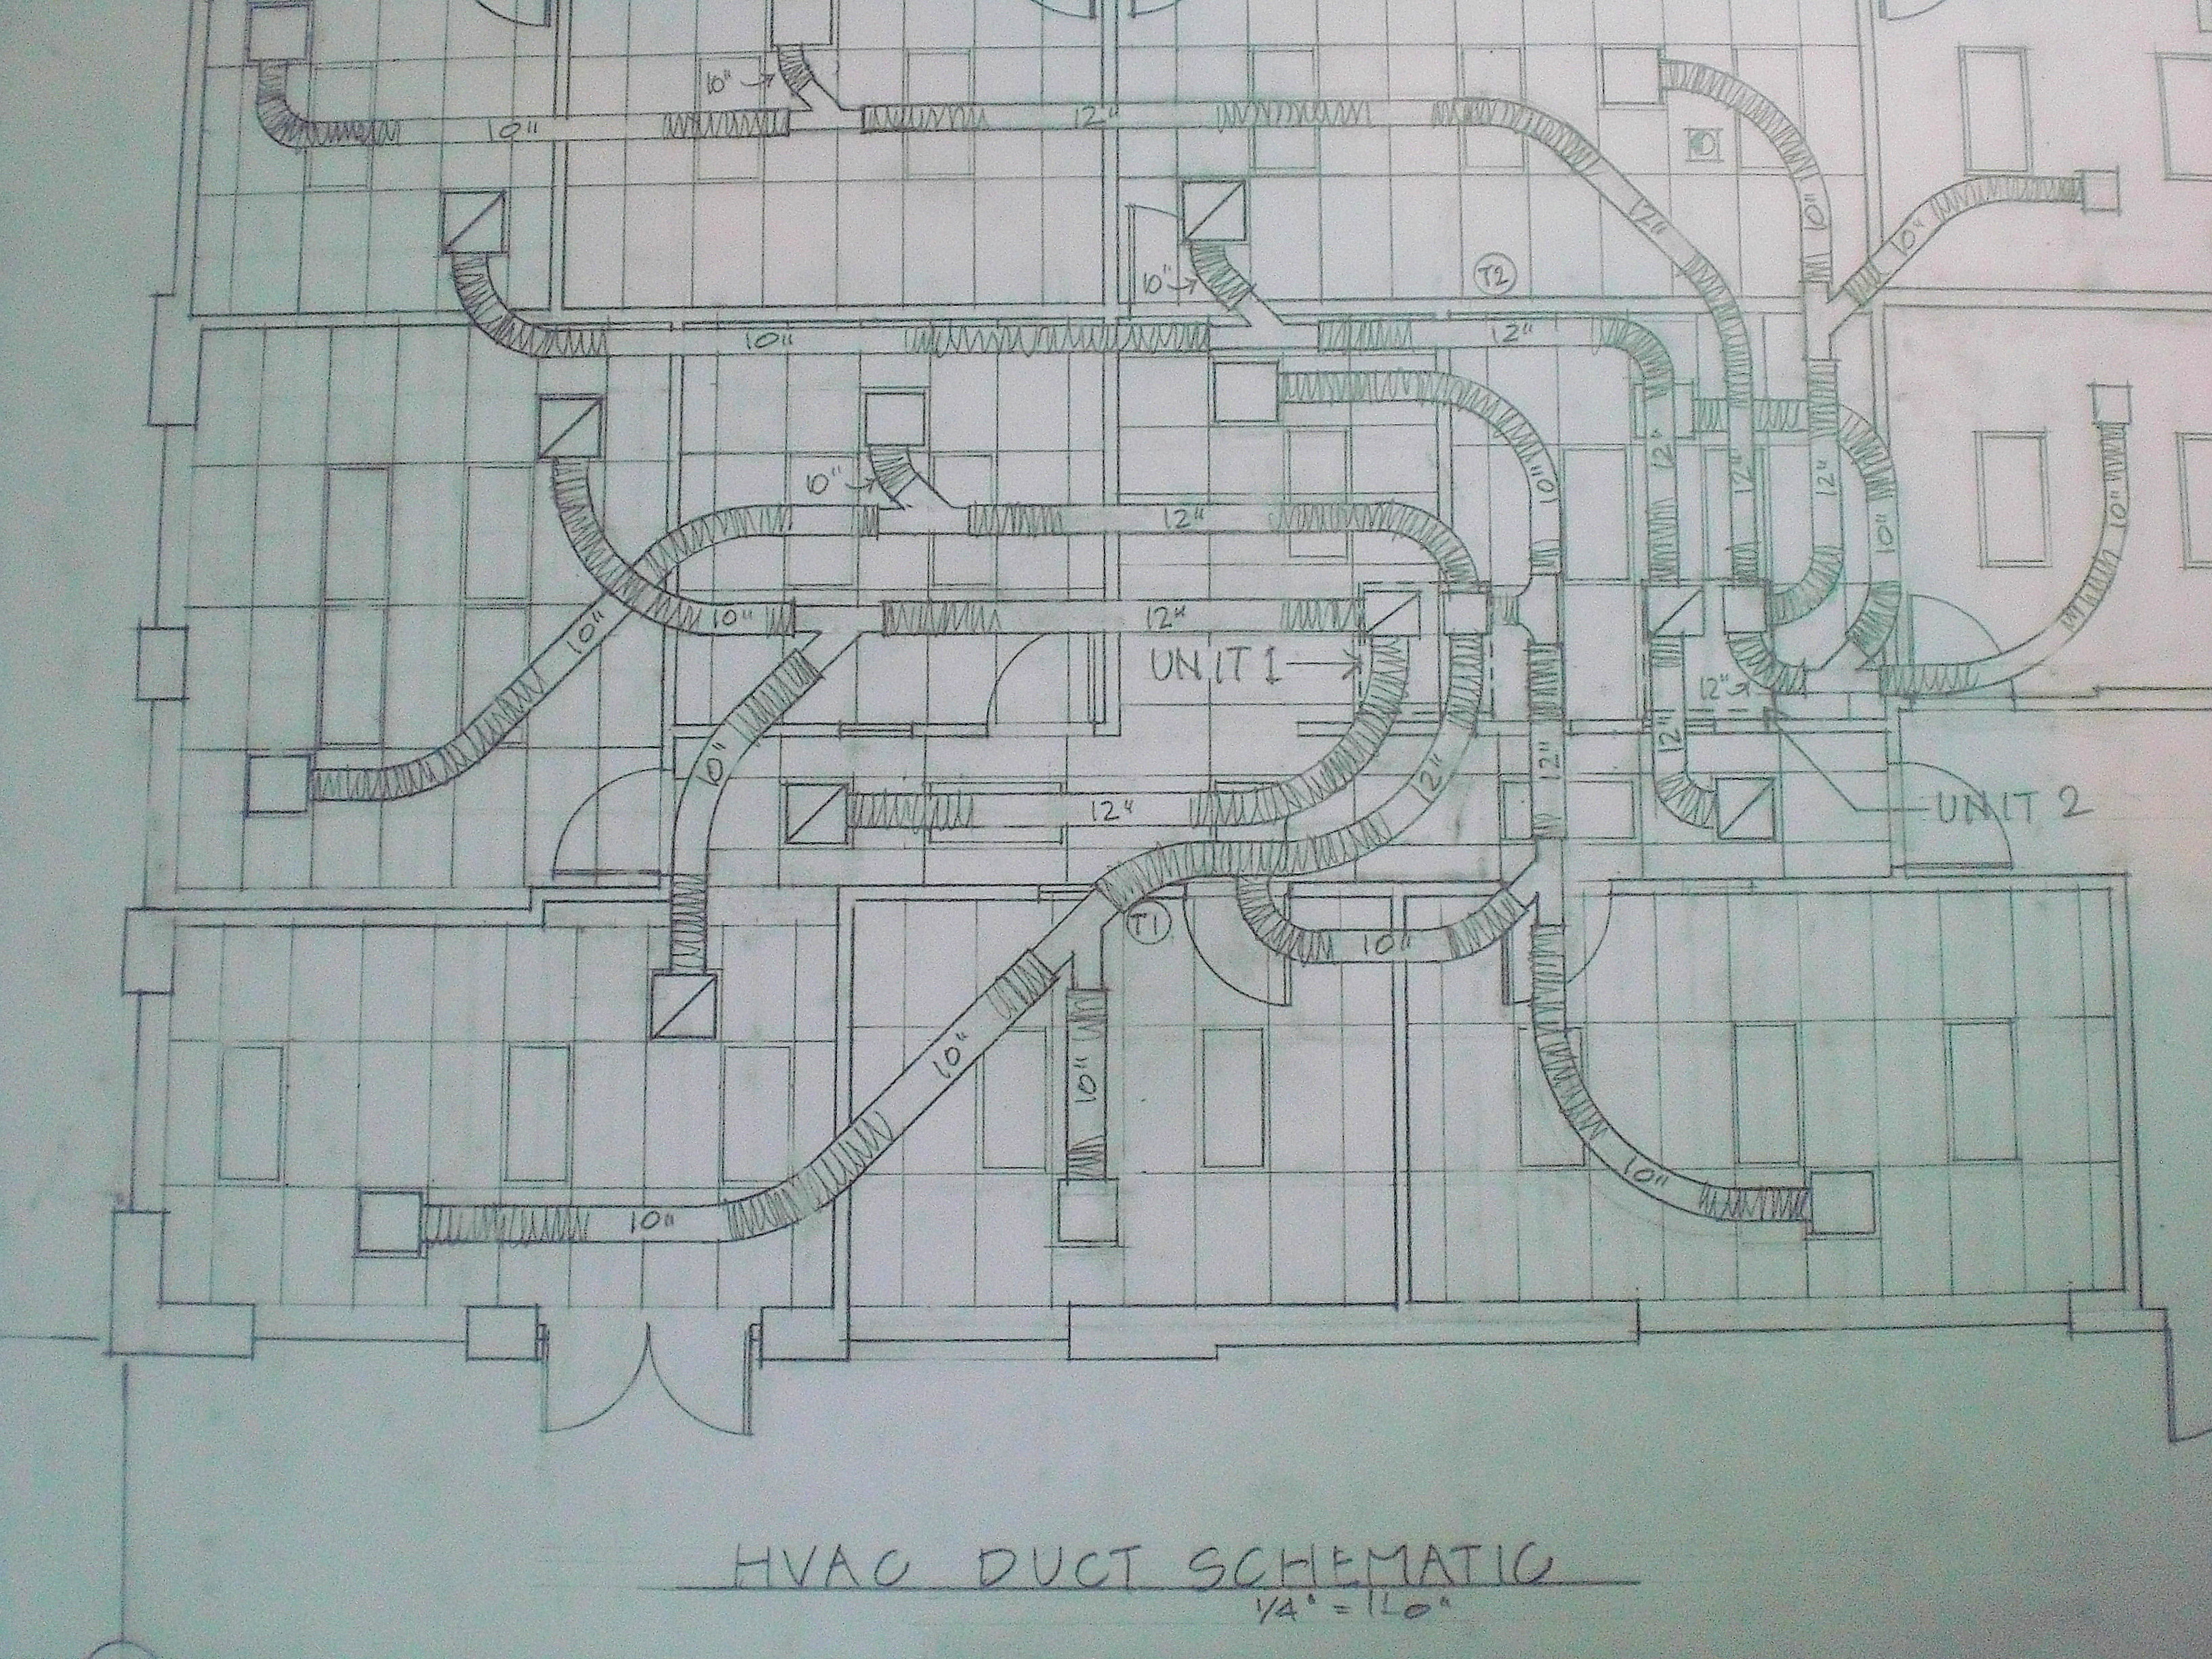 10"
10"
12"
10"
12"
10"
T2
10"
10"
12"
10"
12"
12"
12"
10"
10"
10"
12"
10"
10"
12"
UNIT 1
12"
10"
12"
12"
12"
12"
UNIT 2
T1
10"
10"
10"
10"
10"
HVAC DUCT SCHEMATIC
1/4" = 1'-0"